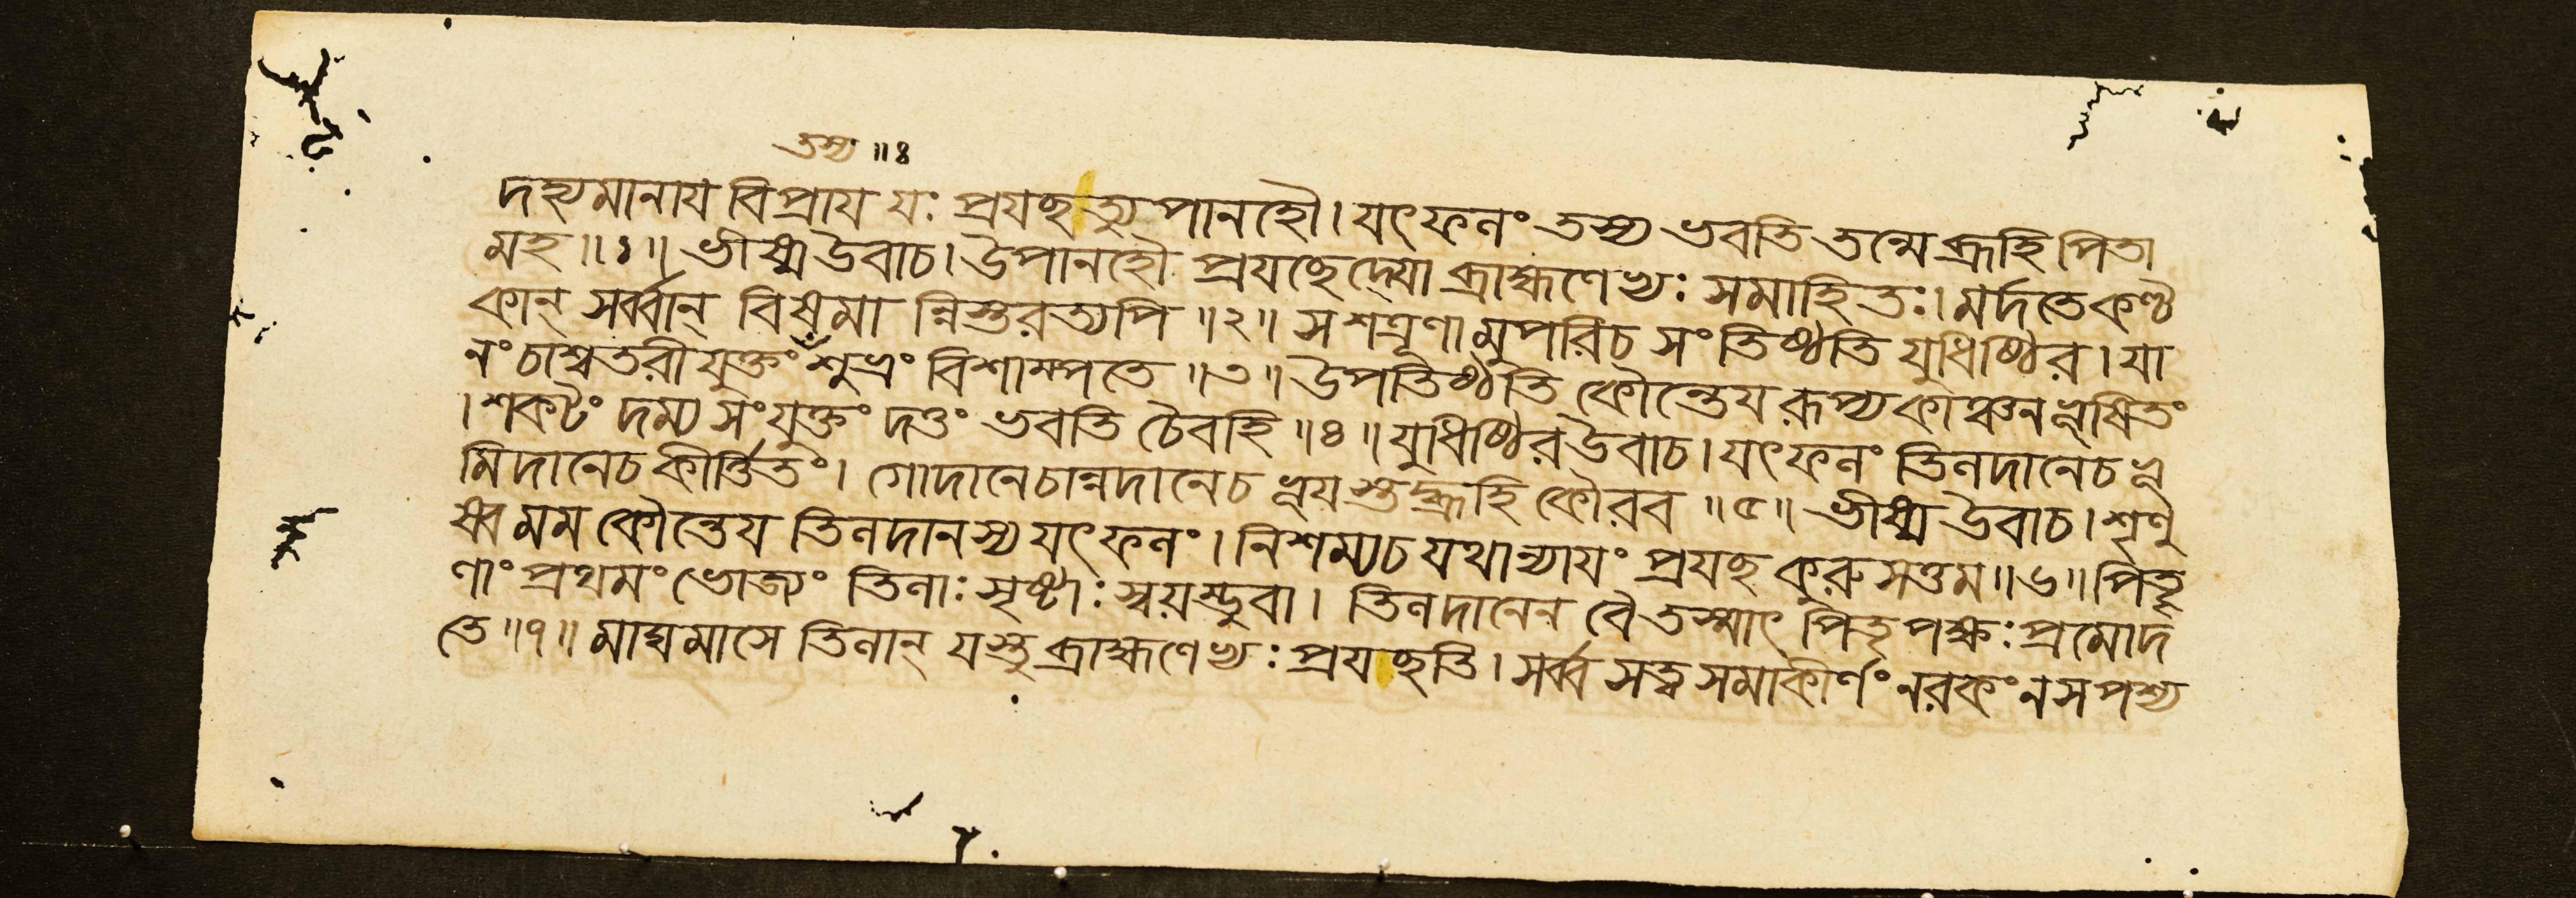 তস্য ॥ ৪
দহ্যমানায বিপ্রায যঃ প্রযচ্ছত্যুপানহৌ। যৎফলং তস্য ভবতি তন্মে ব্রূহি পিতা
মহ ॥ ১ ॥ ভীষ্ম উবাচ। উপানহৌ প্রযচ্ছেদ্যো ব্রাহ্মণেভ্যঃ সমাহিতঃ। মর্দতে কণ্ট
কান্ সর্ব্বান্ বিষমান্নিস্তরত্যপি ॥ ২ ॥ স শত্রূণামুপরি চ সংতিষ্ঠতি যুধিষ্ঠির। যা
নং চাশ্বতরীযুক্তং শুভ্রং বিশাম্পতে ॥ ৩ ॥ উপতিষ্ঠতি কৌন্তেয রূপ্যকাঞ্চনভূষিতং
। শকটং দম্যসংযুক্তং দত্তং ভবতি চৈবহি ॥ ৪ ॥ যুধিষ্ঠির উবাচ। যৎফলং তিলদানে চ ভূ
মিদানে চ কীর্ত্তিতং। গোদানে চান্নদানে চ ভূয়স্তদ্ব্রূহি কৌরব ॥ ৫ ॥ ভীষ্ম উবাচ। শৃণু
ষ্ব মম কৌন্তেয তিলদানস্য যৎফলং। নিশম্য চ যথান্যাযং প্রযচ্ছ কুরুসত্তম ॥ ৬ ॥ পিতৄ
ণাং প্রথমং ভোজ্যং তিলাঃ সৃষ্টাঃ স্বয়ম্ভুবা। তিলদানেন বৈ তস্মাৎ পিতৃপক্ষঃ প্রমোদ
তে ॥ ৭ ॥ মাঘমাসে তিলান্ যস্তু ব্রাহ্মণেভ্যঃ প্রযচ্ছতি। সর্ব্বসত্ত্বসমাকীর্ণং নরকং ন স পশ্য